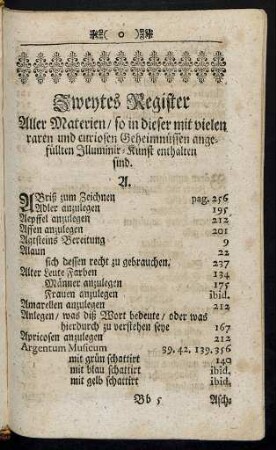 ( o )
Zweytes Register
Aller Materien / so in dieser mit vielen
raren und curiosen Geheimnüssen ange-
füllten Illuminir-Kunst enthalten
sind.
A.
ABriß zum Zeichnen pag. 256
Adler anzulegen 195
Aepffel anzulegen 212
Affen anzulegen 201
Agtsteins Bereitung 9
Alaun 22
sich dessen recht zu gebrauchen. 237
Alter Leute Farben 134
Männer anzulegen 175
Frauen anzulegen ibid.
Amarellen anzulegen 212
Anlegen / was diß Wort bedeute / oder was
hierdurch zu verstehen seye 167
Apricosen anzulegen 212
Argentum Musicum 39. 42. 139. 356
mit grün schattirt 140
mit blau schattirt ibid.
mit gelb schattirt ibid.
Bb 5 Asch-